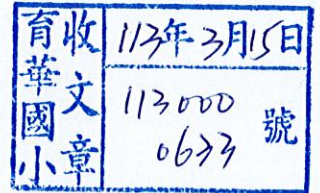 育華國小
收文章
113年3月15日
113000
0633
號